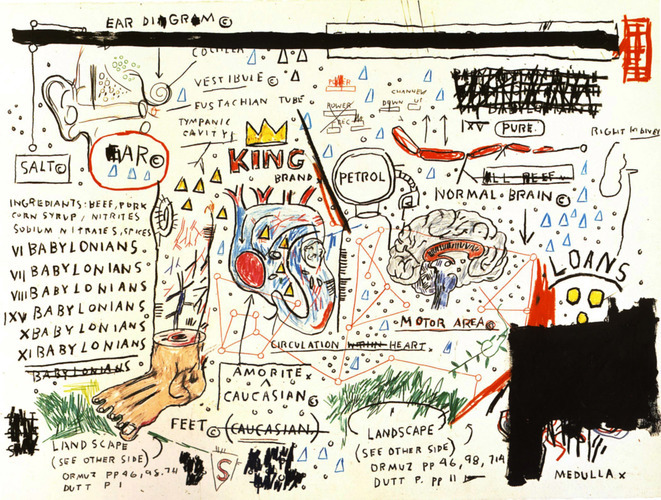 EAR DIAGRAM ©
COCHLEA
VESTIBULE ©
EUSTACHIAN TUBE
TYMPANIC
CAVITY
SALT©
EAR©
KING
BRAND
PETROL
POWER
CHANNEL
DOWN
UP
XV
PURE.
ALL BEEF
NORMAL BRAIN ©
LOANS
INGREDIANTS: BEEF, PORK
CORN SYRUP / NITRITES
SODIUM NITRATES, SPICES
VI BABYLONIANS.
VII BABYLONIANS
VIII BABYLONIANS
IXV BABYLONIANS
X BABYLONIANS
XI BABYLONIANS
BABYLONIANS
MOTOR AREA ©
CIRCULATION WITHIN HEART.
AMORITE x
CAUCASIAN ©
FEET ©
(CAUCASIAN.)
LANDSCAPE
(SEE OTHER SIDE)
ORMUZ PP 46, 98, 714
DUTT P 1
S
LANDSCAPE
(SEE OTHER SIDE)
ORMUZ PP 46, 98, 714
DUTT P. PP 11
MEDULLA x